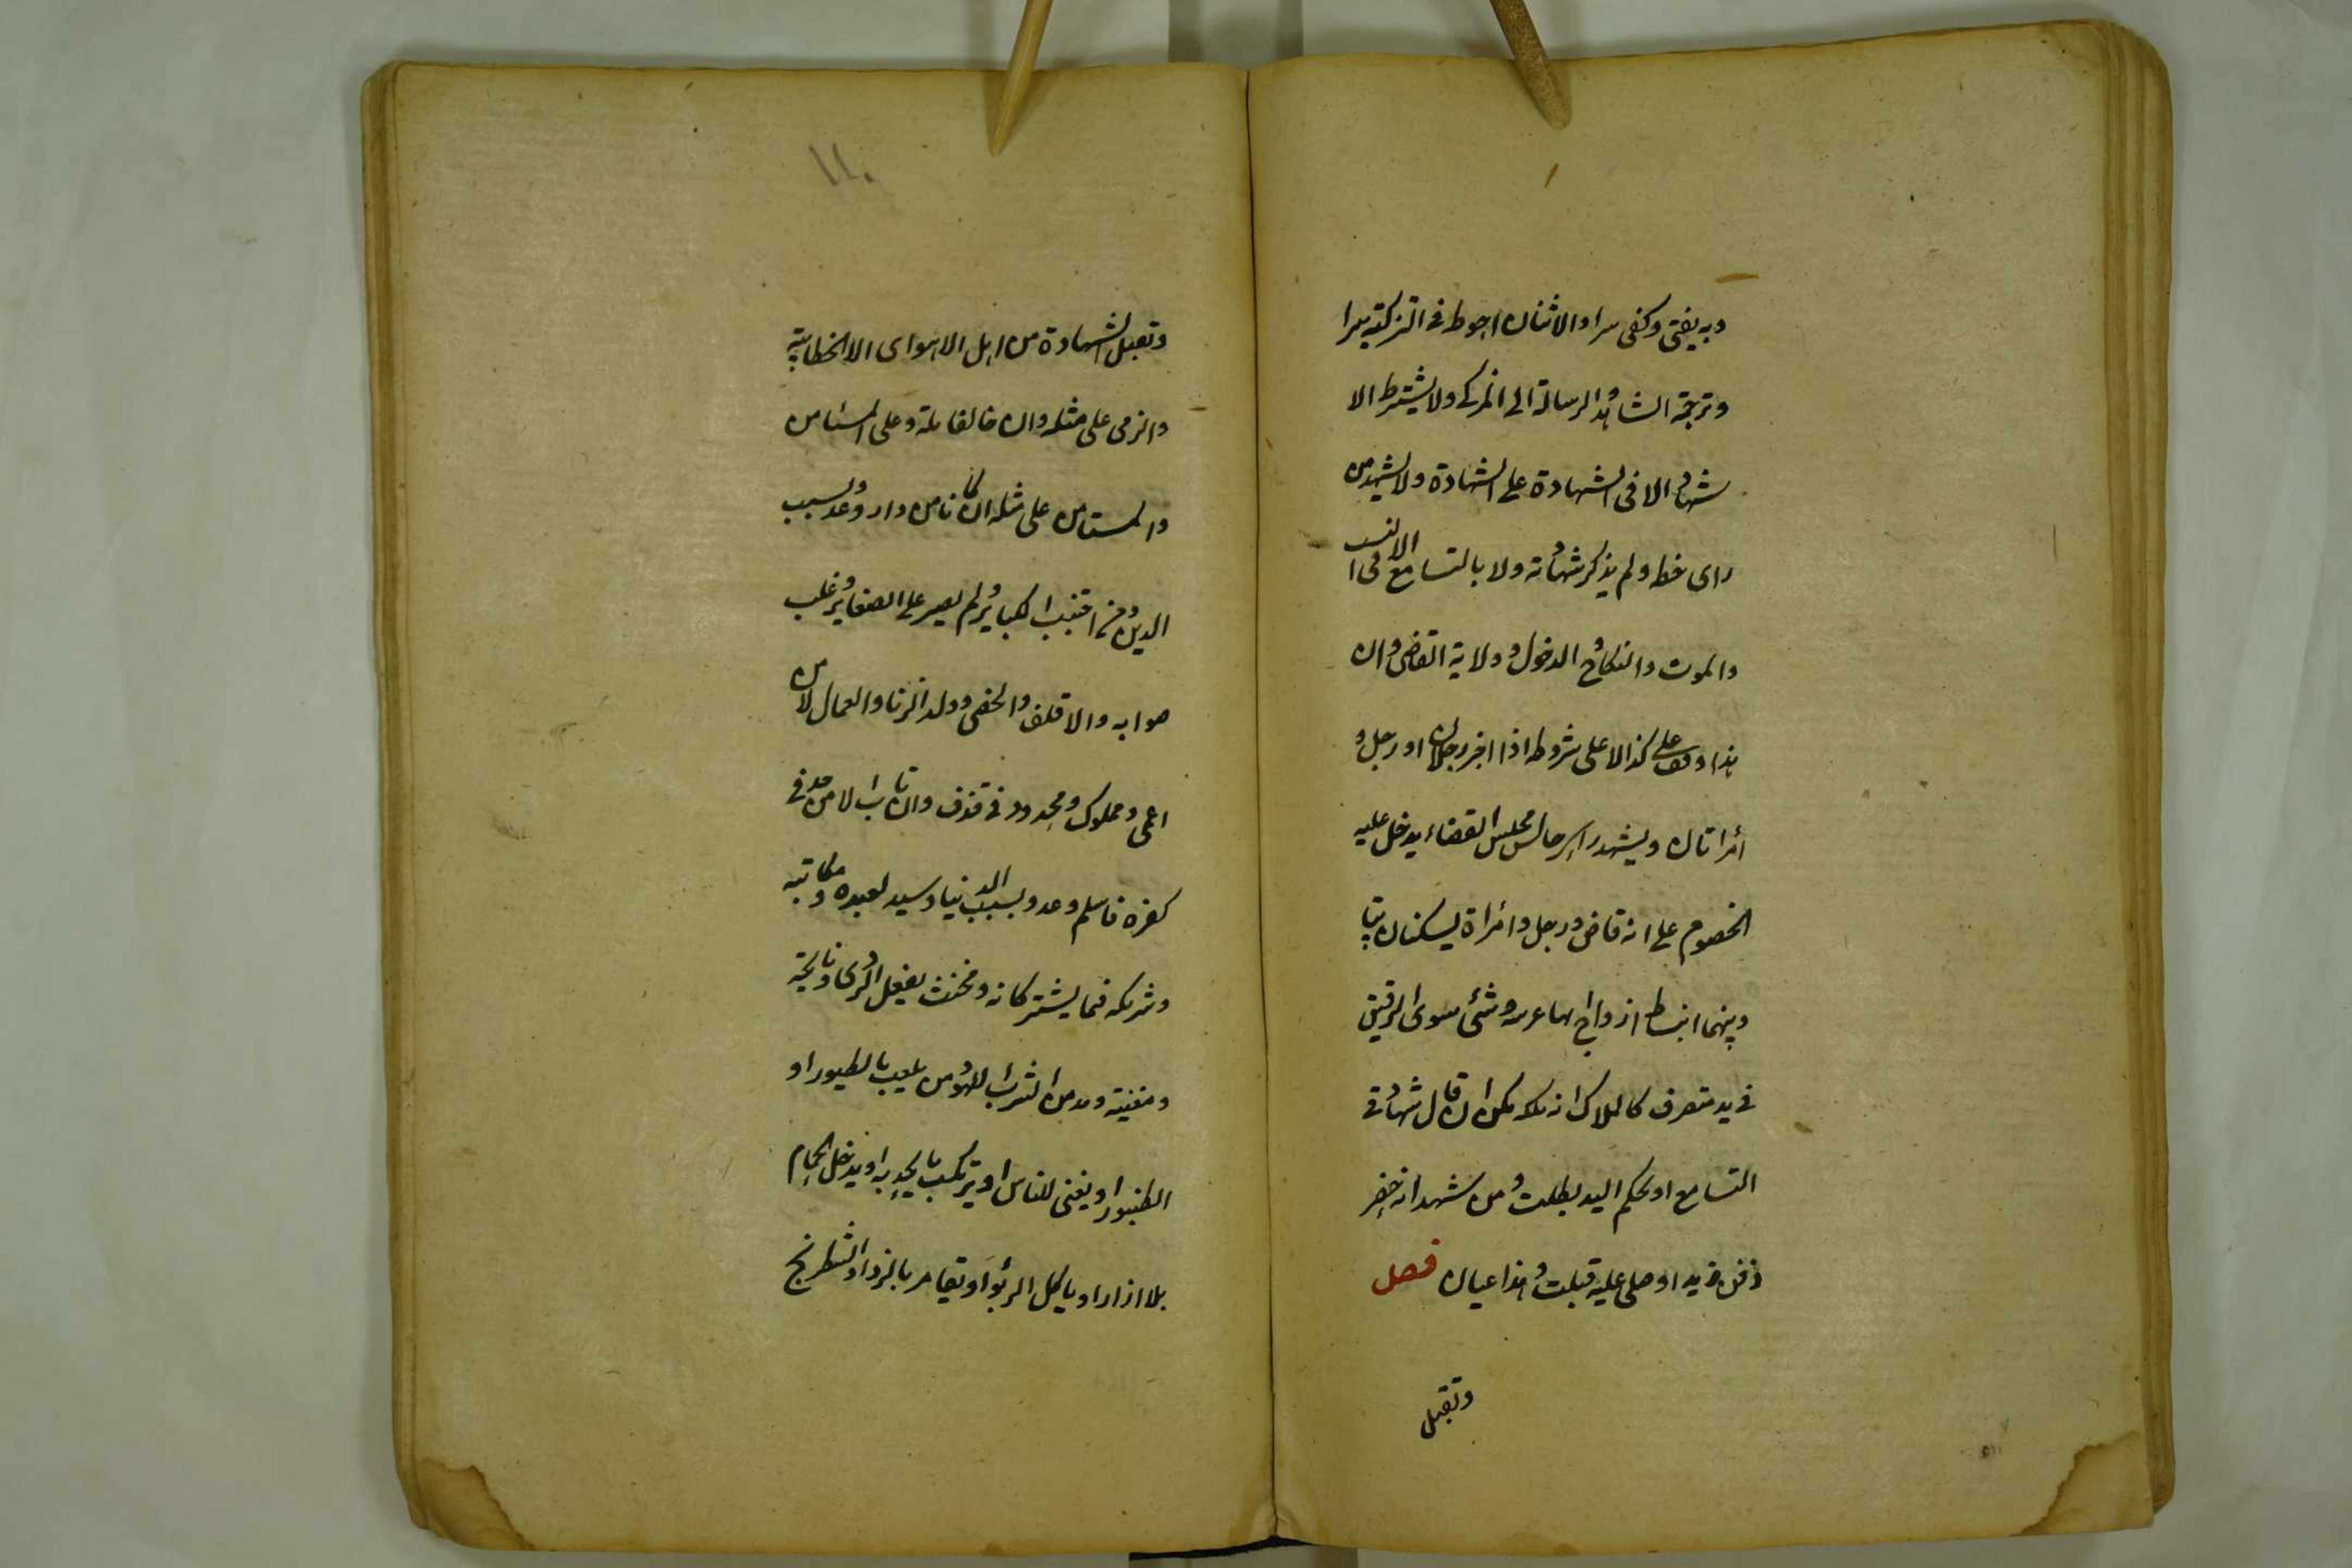 وبه يفتى وكفى سرا والاثنان احوط فى التزكية سرا
وترجمة الشاهد والرسالة الى المزكے ولا يشترط الا
شهاد الا فى الشهادة على الشهادة ولا يشهد من
راى خطه ولم يذكر شهادته ولا بالتسامع الا فى النسب
والموت والنكاح والدخول وولاية القاضى وان
هذا وقف على كذا لا على شروطه اذا اخبر رجلان او رجل و
امراتان ويشهد راے جالس مجلس القضاء يدخل عليه
الخصوم على انه قاض ورجل وامراة يسكنان بيتا
وبينهما انبساط ازواج انها عرسه وشئ سوى الرقيق
فى يد متصرف كالملاك انه ملكه لكن ان قال شهادتى
التسامع او بحكم اليد بطلت ومن شهد انه حضر
دفن زيد او صلى عليه قبلت وهذا عيان فصل
وتقبل
١١٠
وتقبل الشهادة من اهل الاهواى الا الخطابية
والذمى على مثله وان خالفا ملة وعلى المستامن
والمستامن على مثله ان كانا من دار وعدو بسبب
الدين ومن اجتنب الكبائر ولم يصر على الصغائر وغلب
صوابه والاقلف والخصى وولد الزنا والعمال لا من
اعمى ومملوك ومحدود فى قذف وان تاب الا من حد فى
كفره فاسلم وعدو بسبب الدنيا وسيد لعبده ومكاتبه
وشريكه فيما يشتركانه ومخنث يفعل الردى ونايحة
ومغنية ومدمن الشراب للهو ومن يلعب بالطيور او
الطنبور او يغنى للناس او يرتكب ما يحد به او يدخل الحمام
بلا ازار او ياكل الربوا او يقامر بالنرد او الشطرنج